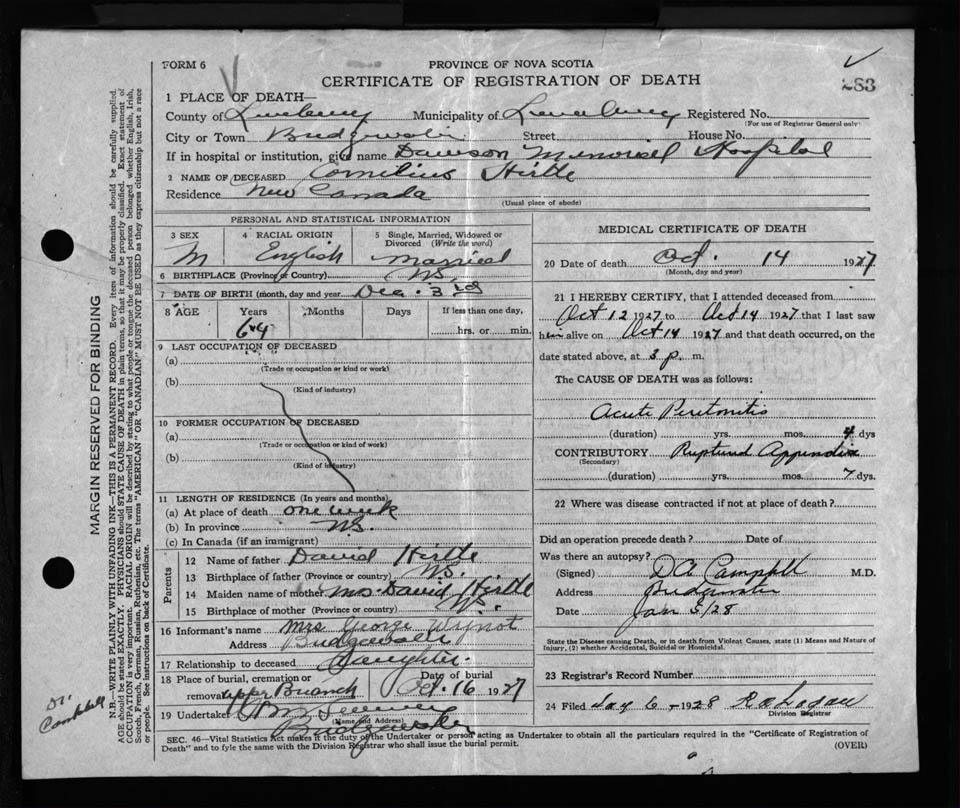 FORM 6
PROVINCE OF NOVA SCOTIA
CERTIFICATE OF REGISTRATION OF DEATH
283
1 PLACE OF DEATH—
County of Lunenburg Municipality of Lunenburg Registered No.
(For use of Registrar General only)
City or Town Bridgewater Street House No.
If in hospital or institution, give name Dawson Memorial Hospital
2 NAME OF DECEASED Cornelius Hirtle
Residence New Canada
(Usual place of abode)
PERSONAL AND STATISTICAL INFORMATION
3 SEX 4 RACIAL ORIGIN 5 Single, Married, Widowed or Divorced (Write the word)
M English Married
6 BIRTHPLACE (Province or Country) N.S.
7 DATE OF BIRTH (month, day and year) Dec. 3rd
8 AGE Years Months Days If less than one day,
64 hrs. or min.
9 LAST OCCUPATION OF DECEASED
(a)
(Trade or occupation or kind or work)
(b)
(Kind of industry)
10 FORMER OCCUPATION OF DECEASED
(a)
(Trade or occupation or kind of work)
(b)
(Kind of industry)
11 LENGTH OF RESIDENCE (In years and months)
(a) At place of death one week
(b) In province N.S.
(c) In Canada (if an immigrant)
Parents
12 Name of father David Hirtle
13 Birthplace of father (Province or country) N.S.
14 Maiden name of mother Mrs. David Hirtle
15 Birthplace of mother (Province or country) N.S.
16 Informant's name Mrs George Wynot
Address Bridgewater
17 Relationship to deceased Daughter.
18 Place of burial, cremation or removal Upper Branch
Date of burial Oct. 16 1927
19 Undertaker
(Name and Address)
Bridgewater
MEDICAL CERTIFICATE OF DEATH
20 Date of death Oct. 14 1927
(Month, day and year)
21 I HEREBY CERTIFY, that I attended deceased from
Oct 12 1927 to Oct 14 1927 that I last saw
him alive on Oct 14 1927 and that death occurred, on the
date stated above, at 3 p. m.
The CAUSE OF DEATH was as follows:
Acute Peritonitis
(duration) yrs. mos. 4 dys
CONTRIBUTORY Ruptured Appendix
(Secondary)
(duration) yrs. mos. 7 dys.
22 Where was disease contracted if not at place of death?
Did an operation precede death? Date of
Was there an autopsy?
(Signed) D A Campbell M.D.
Address Bridgewater
Date Jan 5/28
State the Disease causing Death, or in death from Violent Causes, state (1) Means and Nature of
Injury, (2) whether Accidental, Suicidal or Homicidal.
23 Registrar's Record Number
24 Filed Jany 6 1928
Division Registrar
SEC. 46—Vital Statistics Act makes it the duty of the Undertaker or person acting as Undertaker to obtain all the particulars required in the "Certificate of Registration of
Death" and to fyle the same with the Division Registrar who shall issue the burial permit.
(OVER)
MARGIN RESERVED FOR BINDING
N.B.—WRITE PLAINLY WITH UNFADING INK—THIS IS A PERMANENT RECORD. Every item of information should be carefully supplied.
AGE should be stated EXACTLY. PHYSICIANS should STATE CAUSE OF DEATH in plain terms, so that it may be properly classified. Exact statement of
OCCUPATION is very important. RACIAL ORIGIN will be described by stating to what people or tongue the deceased person belonged whether English, Irish,
Scotch, French, German, Russian, Ruthenian, etc. The terms "AMERICAN" OR "CANADIAN" MUST NOT BE USED as they express citizenship but not a race
or people. See instructions on back of Certificate.
Dr
Campbell